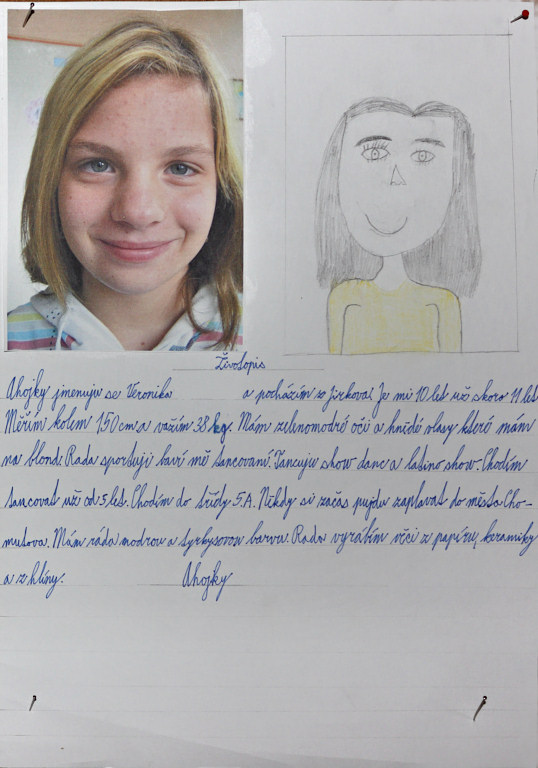 Životopis
Ahojky jmenuju se Veronika a pocházím z Jirkova. Je mi 10 let už skoro 11 let.
Měřím kolem 150 cm a važím 38 kg. Mám zelnomodré oči a hnědé vlasy které mám
na blond. Rada sportuji baví mě tancovaní. Tancuju show danc a latino show. Chodím
tancovat už od 5 let. Chodím do třídy 5.A. Někdy si začas pujdu zaplavat do města Cho-
mutova. Mám ráda modrou a tyrkysovou barvu. Rada vyrábím věci z papíru, keramiky
a z hlíny. Ahojky